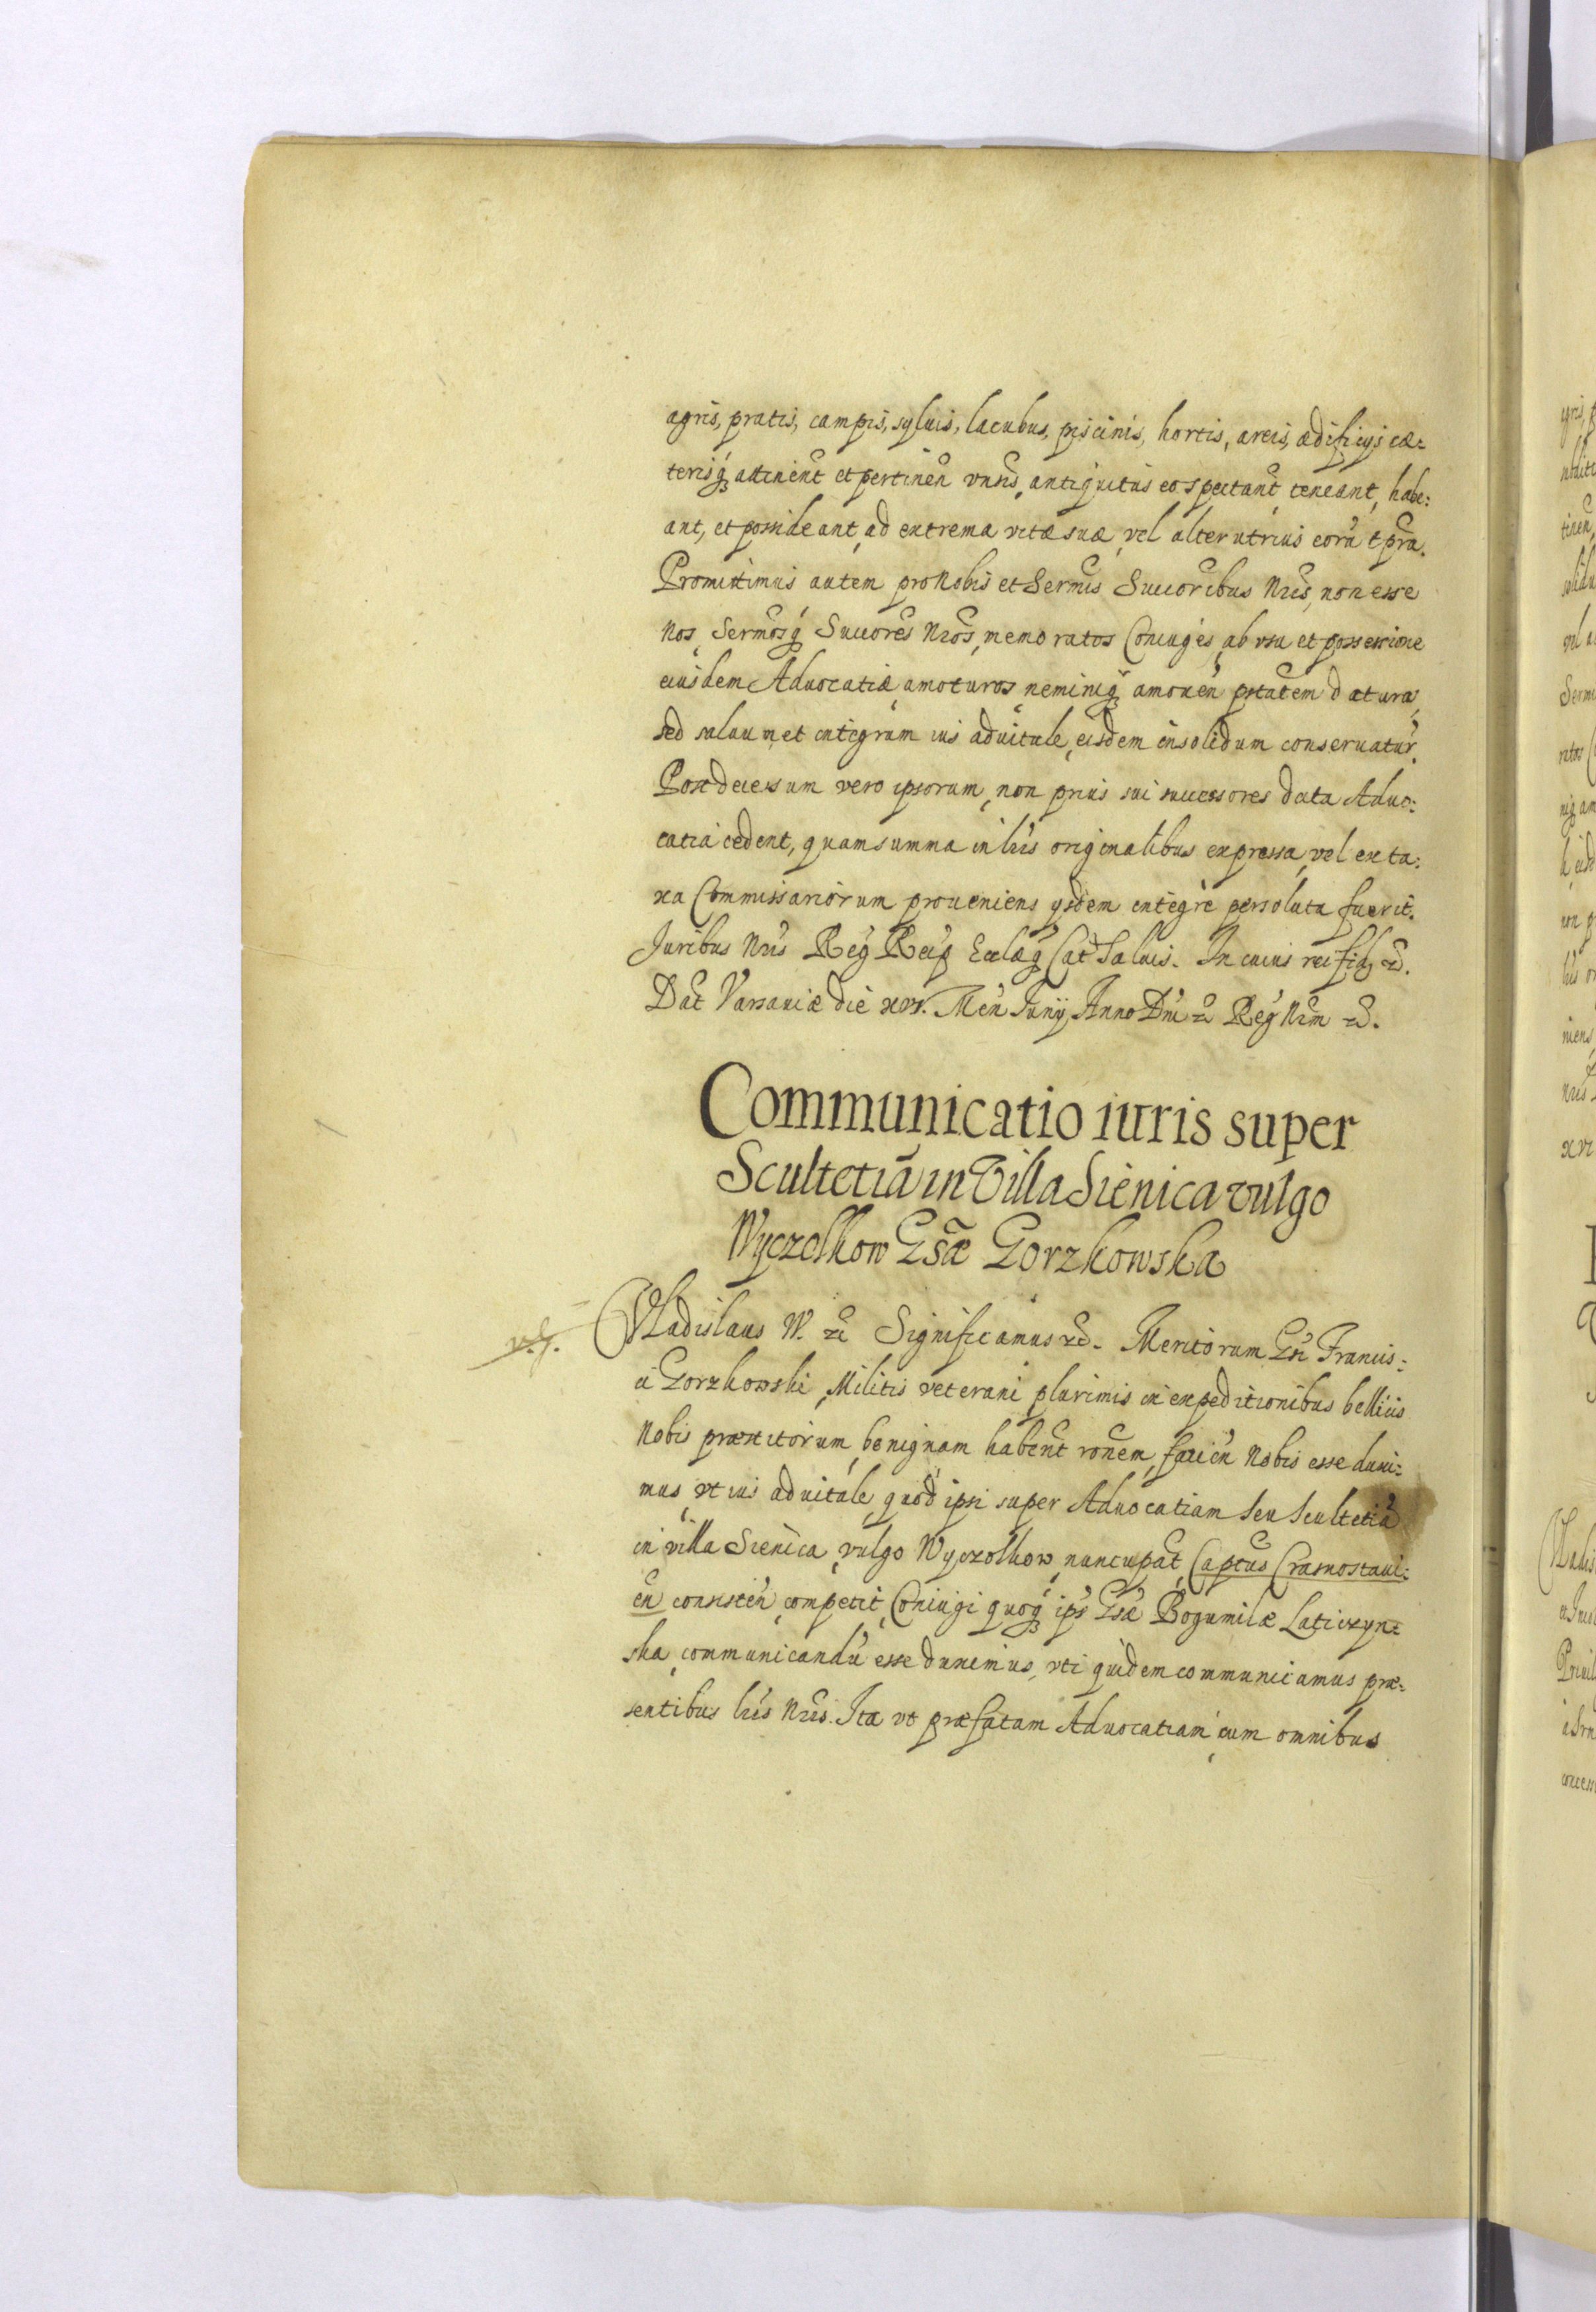 agris, pratis, campis, syluis, lacubus, piscinis, hortis, areis, ædificijs cæ:
terisq́ʒ attinent̃ et pertinen̄ vnsis, antiquitus eo spectant̃, teneant, habe:
ant, et possideant, ad extrema vitæ suæ, vel alterutrius eorũ tp̃ra.
Promittimus autem pro Nobis et Serm̃is Succor̃ibus Nr̃is, non esse
Nos, Serm̃osq́ʒ Succorẽs Nr̃os, memoratos Coniuges, ab vsu et possessione
eiusdem Aduocatiæ amoturos, neminiq́ʒ amouen̄ ptãtem daturos,
sed saluum et integrum ius aduitale, eisdem in solidum conseruatur̃.
Post decessum vero ipsorum, non prius sui successores dicta Aduo:
catia cedent, quam summa in lr̃is originalibus expressa, vel ex ta:
xa Commissariorum proueniens ysdem integrè persoluta fuerit.
Iuribus Nr̃is Reg̃ Reip̃ Ecclæq́ʒ Cat̃ Saluis. In cuius rei fidẽ &c̃.
Dat̃ Varsauiæ die xvi. Men̄ Iunij Anno Dn̄i &c̃ Reg̃ Nr̃m &c̃.
Communicatio iuris super
Scultetiã in Villa Sienica vulgo
Wyczolkow Gs̃æ Gorzkowska
Vladislaus IV. &c̃ Significamus &c̃. Meritorum Gs̃i Francis:
ci Gorzkowski, Militis veterani, plurimis in expeditionibus bellicis
Nobis præstitorum, benignam habent̃ ronẽm, facien̄ Nobis esse duxi:
mus, vt ius aduitale, quod ipsi super Aduocatiam seu Scultetiã
in villa Sienica, vulgo Wyczolkow, nuncupat̃, Captus Crasnostaui:
en̄ consisten̄, competit, Coniugi quoq́ʒ ips̃ Gs̃æ Bogumilæ Laticzyn:
ska, communicandũ esse duximus, vti quidem communicamus præ:
sentibus lr̃is Nr̃is. Ita vt præfatam Aduocatiam, cum omnibus